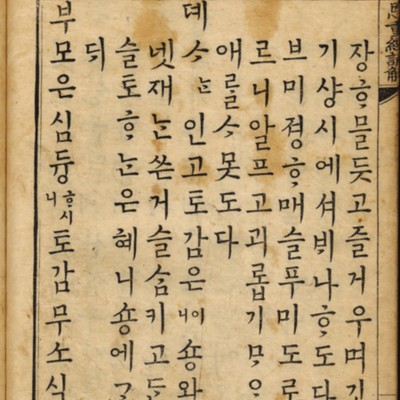 恩重經諺解
장ᄒᆞ믈듯고즐거우며
기샹시에셔ᄇᆡ나ᄒᆞ도다
브미졍ᄒᆞ매슬푸미도로
르니알프고괴롭기ᄆᆞ
애ᄅᆞᆯᄉᆞ못도다
뎨ᄉᆞᄂᆞᆫ인고토감은이니숑와
넷재ᄂᆞᆫ쓴거슬ᄉᆞᆷ키고ᄃᆞᆫ
슬토ᄒᆞᄂᆞᆫ은혜니숑에
ᄃᆡ
부모은심듕ᄒᆞ시니토감무소식